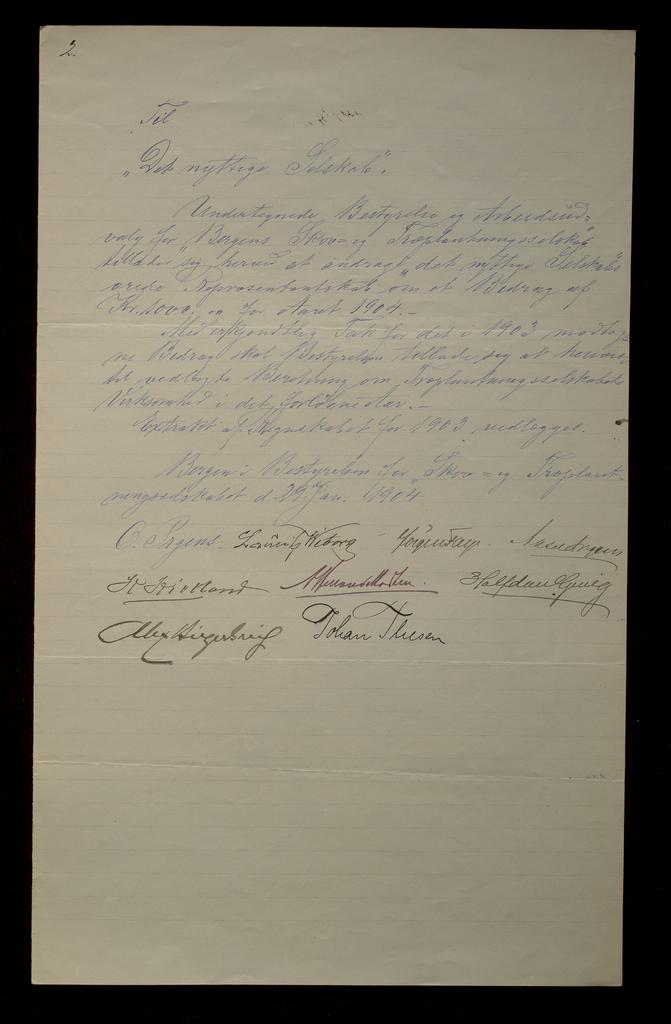 2.
Til
„Det nyttige Selskab".
Undertegnede Bestyrelse og Arbeidsud=
valg for „Bergens Skov= og Træplantningsselskab"
tillader sig herved at andrage „det nyttige Selskabs"
ærede Repræsentantskab om et Bidrag af
Kr. 1000,00 for Aaret 1904.—
Med erkjendtlig Tak for det i 1903 modtag=
ne Bidrag skal Bestyrelsen tillade sig at henvise
til vedlagte Beretning om Træplantningsselskabets
Virksomhed i det forløbne Aar.—
Extrakt af Regnskabet for 1903 vedlægges.
Bergen i Bestyrelsen for „Skov= og Træplant=
ningsselskabet d. 29 Jan. 1904
O. Irgens. Lauritz Wiborg
Halfdan Grieg
Johan Thesen